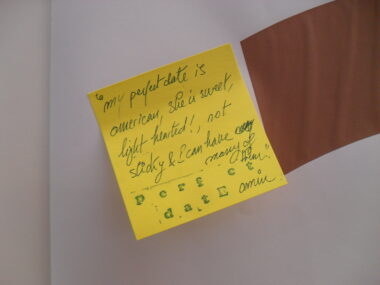 "my perfect date is
american, she is sweet,
light hearted!, not
sticky & I can have
many of them."
perfect
datE
amin